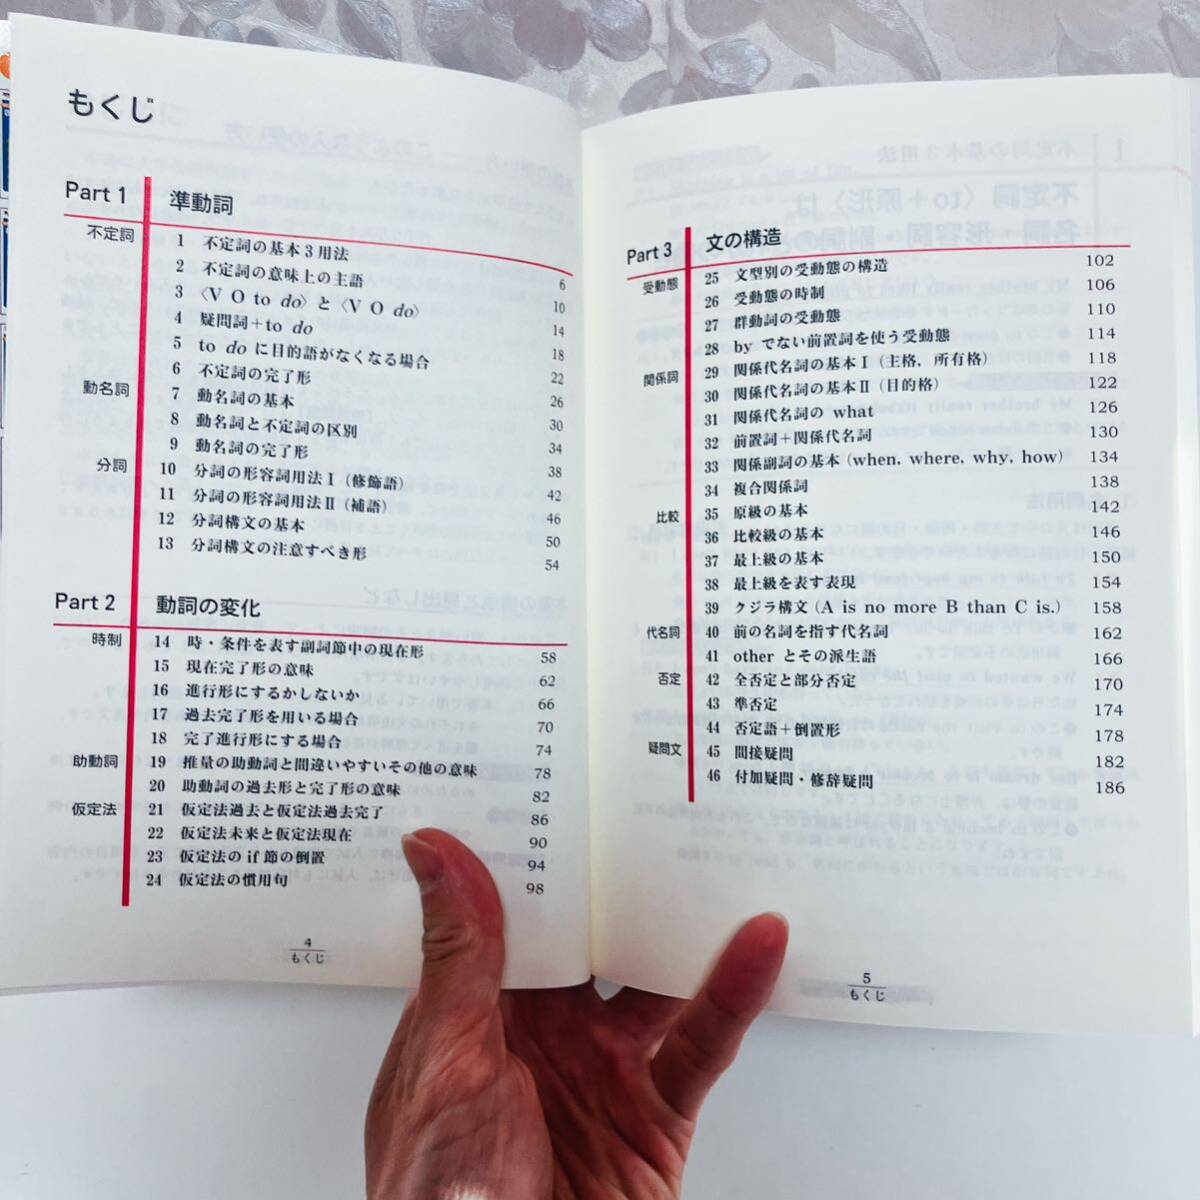 もくじ
Part 1 準動詞
不定詞 1 不定詞の基本3用法 6
2 不定詞の意味上の主語 10
3 〈V O to do〉と〈V O do〉 14
4 疑問詞+to do 18
5 to do に目的語がなくなる場合 22
6 不定詞の完了形 26
動名詞 7 動名詞の基本 30
8 動名詞と不定詞の区別 34
9 動名詞の完了形 38
分詞 10 分詞の形容詞用法Ⅰ(修飾語) 42
11 分詞の形容詞用法Ⅱ(補語) 46
12 分詞構文の基本 50
13 分詞構文の注意すべき形 54
Part 2 動詞の変化
時制 14 時・条件を表す副詞節中の現在形 58
15 現在完了形の意味 62
16 進行形にするかしないか 66
17 過去完了形を用いる場合 70
18 完了進行形にする場合 74
助動詞 19 推量の助動詞と間違いやすいその他の意味 78
20 助動詞の過去形と完了形の意味 82
仮定法 21 仮定法過去と仮定法過去完了 86
22 仮定法未来と仮定法現在 90
23 仮定法の if 節の倒置 94
24 仮定法の慣用句 98
4
もくじ
Part 3 文の構造
受動態 25 文型別の受動態の構造 102
26 受動態の時制 106
27 群動詞の受動態 110
28 by でない前置詞を使う受動態 114
関係詞 29 関係代名詞の基本Ⅰ(主格,所有格) 118
30 関係代名詞の基本Ⅱ(目的格) 122
31 関係代名詞の what 126
32 前置詞+関係代名詞 130
33 関係副詞の基本(when, where, why, how) 134
34 複合関係詞 138
比較 35 原級の基本 142
36 比較級の基本 146
37 最上級の基本 150
38 最上級を表す表現 154
39 クジラ構文(A is no more B than C is.) 158
代名詞 40 前の名詞を指す代名詞 162
41 other とその派生語 166
否定 42 全否定と部分否定 170
43 準否定 174
44 否定語+倒置形 178
疑問文 45 間接疑問 182
46 付加疑問・修辞疑問 186
5
もくじ